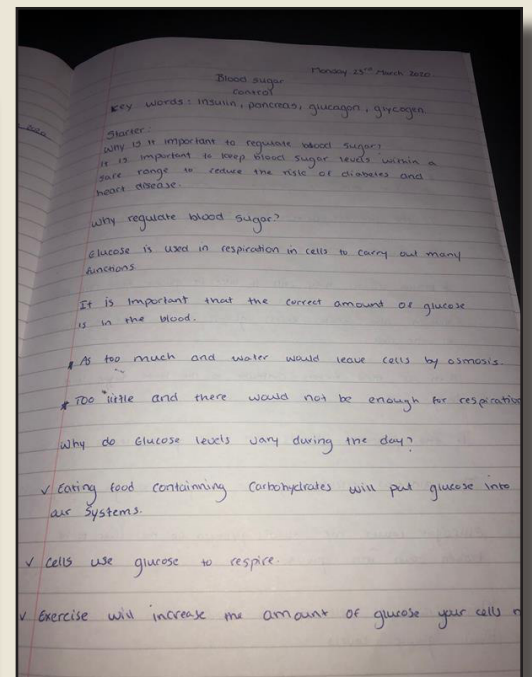 Monday 23rd March 2020
Blood sugar
control
Key words: insulin, pancreas, glucagon, glycogen
Starter:
Why is it important to regulate blood sugar?
It is important to keep blood sugar levels within a
safe range to reduce the risk of diabetes and
heart disease.
Why regulate blood sugar?
Glucose is used in respiration in cells to carry out many
functions
It is important that the correct amount of glucose
is in the blood.
* As too much and water would leave cells by osmosis.
* Too little and there would not be enough for respiration
Why do Glucose levels vary during the day?
✓ Eating food containning carbohydrates will put glucose into
our systems.
✓ Cells use glucose to respire.
✓ Exercise will increase the amount of glucose your cells